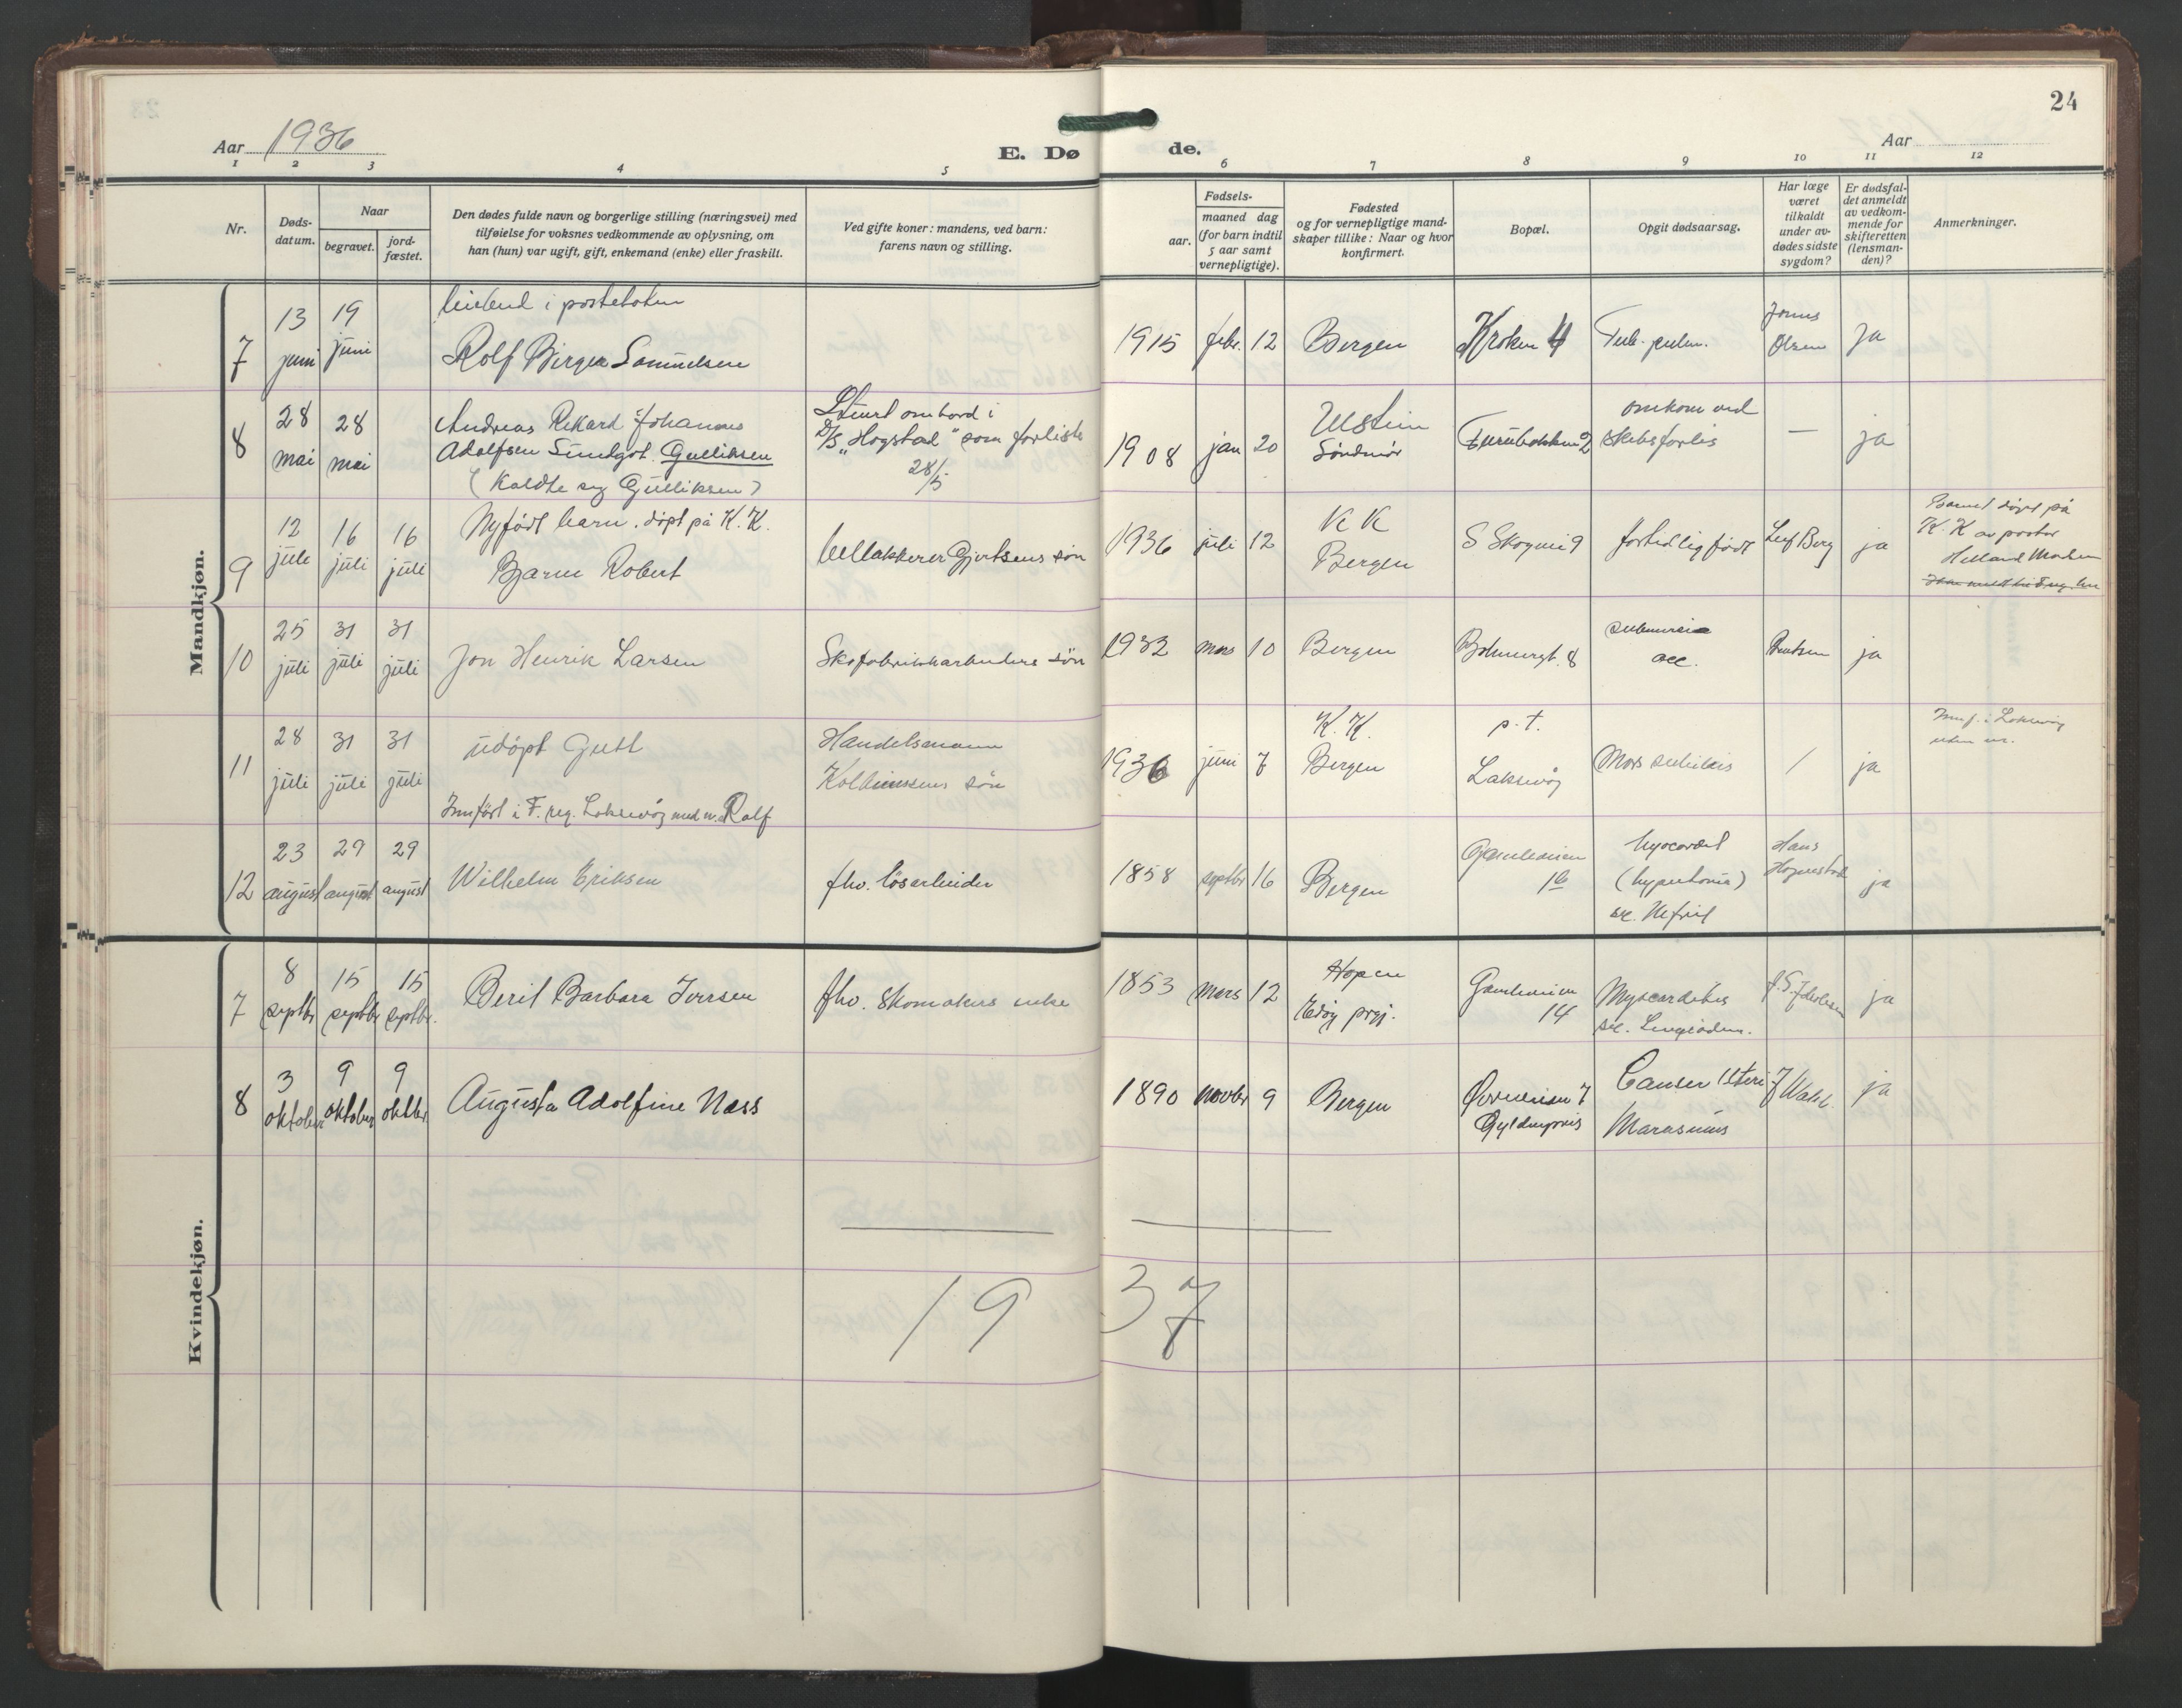 24
Aar 1936
E. Dø
de.
Aar
1 2 3 4 5 6 7 8 9 10 11 12
Nr.
Døds-
datum.
Naar
begravet.
jord-
fæstet.
Den dødes fulde navn og borgerlige stilling (næringsvei) med
tilføielse for voksnes vedkommende av oplysning, om
han (hun) var ugift, gift, enkemand (enke) eller fraskilt.
Ved gifte koner: mandens, ved barn:
farens navn og stilling.
Fødsels-
aar.
maaned dag
(for barn indtil
5 aar samt
vernepligtige).
Fødested
og for vernepligtige mand-
skaper tillike: Naar og hvor
konfirmert.
Bopæl.
Opgit dødsaarsag.
Har læge
været
tilkaldt
under av-
dødes sidste
sygdom?
Er dødsfal-
det anmeldt
av vedkom-
mende for
skifteretten
(lensman-
den)?
Anmerkninger.
Mandkjøn.
7
13 juni
19 juni
i
Rolf Birger Samuelsen
1915 febr. 12
Bergen
Kroken 4
Tub. pulm.
Olsen
ja
8
28 mai
28 mai
Andreas Rikard Johannes
Adolfsen Sundgot. Gulliksen
(Kaldte seg Gulliksen)
Stuert ombord i
D/S „Hogstad" som forliste
28/5
1908 jan 20
Ulstein
Söndmör
Furubakken 2
omkom ved
skibsforlis
—
ja
9
12 juli
16 juli
16 juli
Nyfödt barn. döpt på K.K.
Bjarne Robert
Gjertsens sön
1936 juli 12
K K
Bergen
S Skogvei 9
fortidlig födt
Leif Berg
ja
Barnet döpt på
K.K av pastor
10
25 juli
31 juli
31 juli
Jon Henrik Larsen
Skofabrikkarbeiders sön
1932 mars 10
Bergen
8
submersio
acc.
ja
11
28 juli
31 juli
31 juli
udöpt Gutt
Innfört i F. reg. Laksevåg med n. Rolf
Handelsmann
sön
1936 juni 7
K.K.
Bergen
p.t.
Laksevåg
Mors subitus
/
ja
Innf. i Laksevåg
uten nr.
12
23 august
29 august
29 august
Wilhelm Eriksen
fhv. lösarbeider
1858 septbr 16
Bergen
1b
Myocardit
(hypertonia)
sec. Nefrit
Hans
ja
Kvindekjøn.
7
8 septbr
15 septbr
15 septbr.
Berit Barbara Iversen
fhv. Skomakers enke
1853 mars 12
Hopen
Edöy prgj.
14
Myocarditis
ja
8
3 oktober
9 oktober
9 oktbr.
Augusta Adolfine Næss
1890 novbr 9
Bergen
7
Gyldenpris
Cancer Uteri
Marasmus
ja
19 37